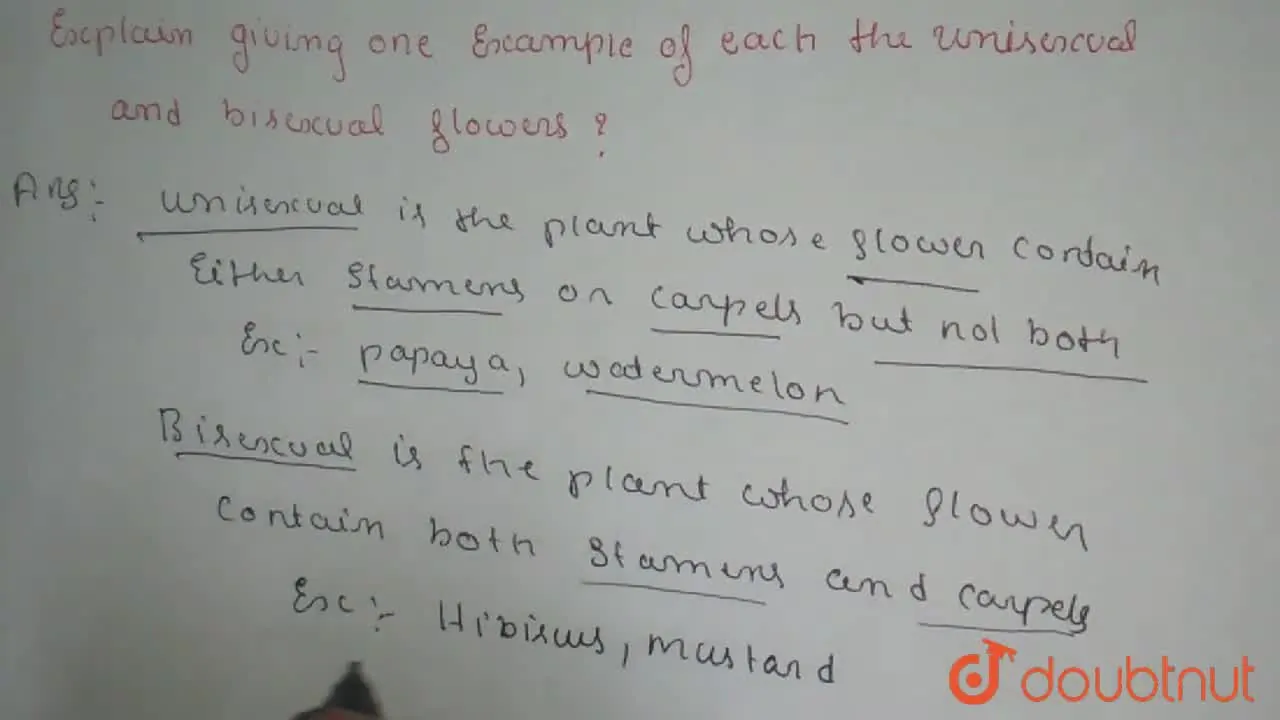 Explain giving one Example of each the unisexual
and bisexual flowers?
Ans:- unisexual is the plant whose flower contain
Either stamens or carpels but not both
Ex:- papaya, watermelon
Bisexual is the plant whose flower
contain both stamens and carpels
Ex:- Hibiscus, mustard
doubtnut